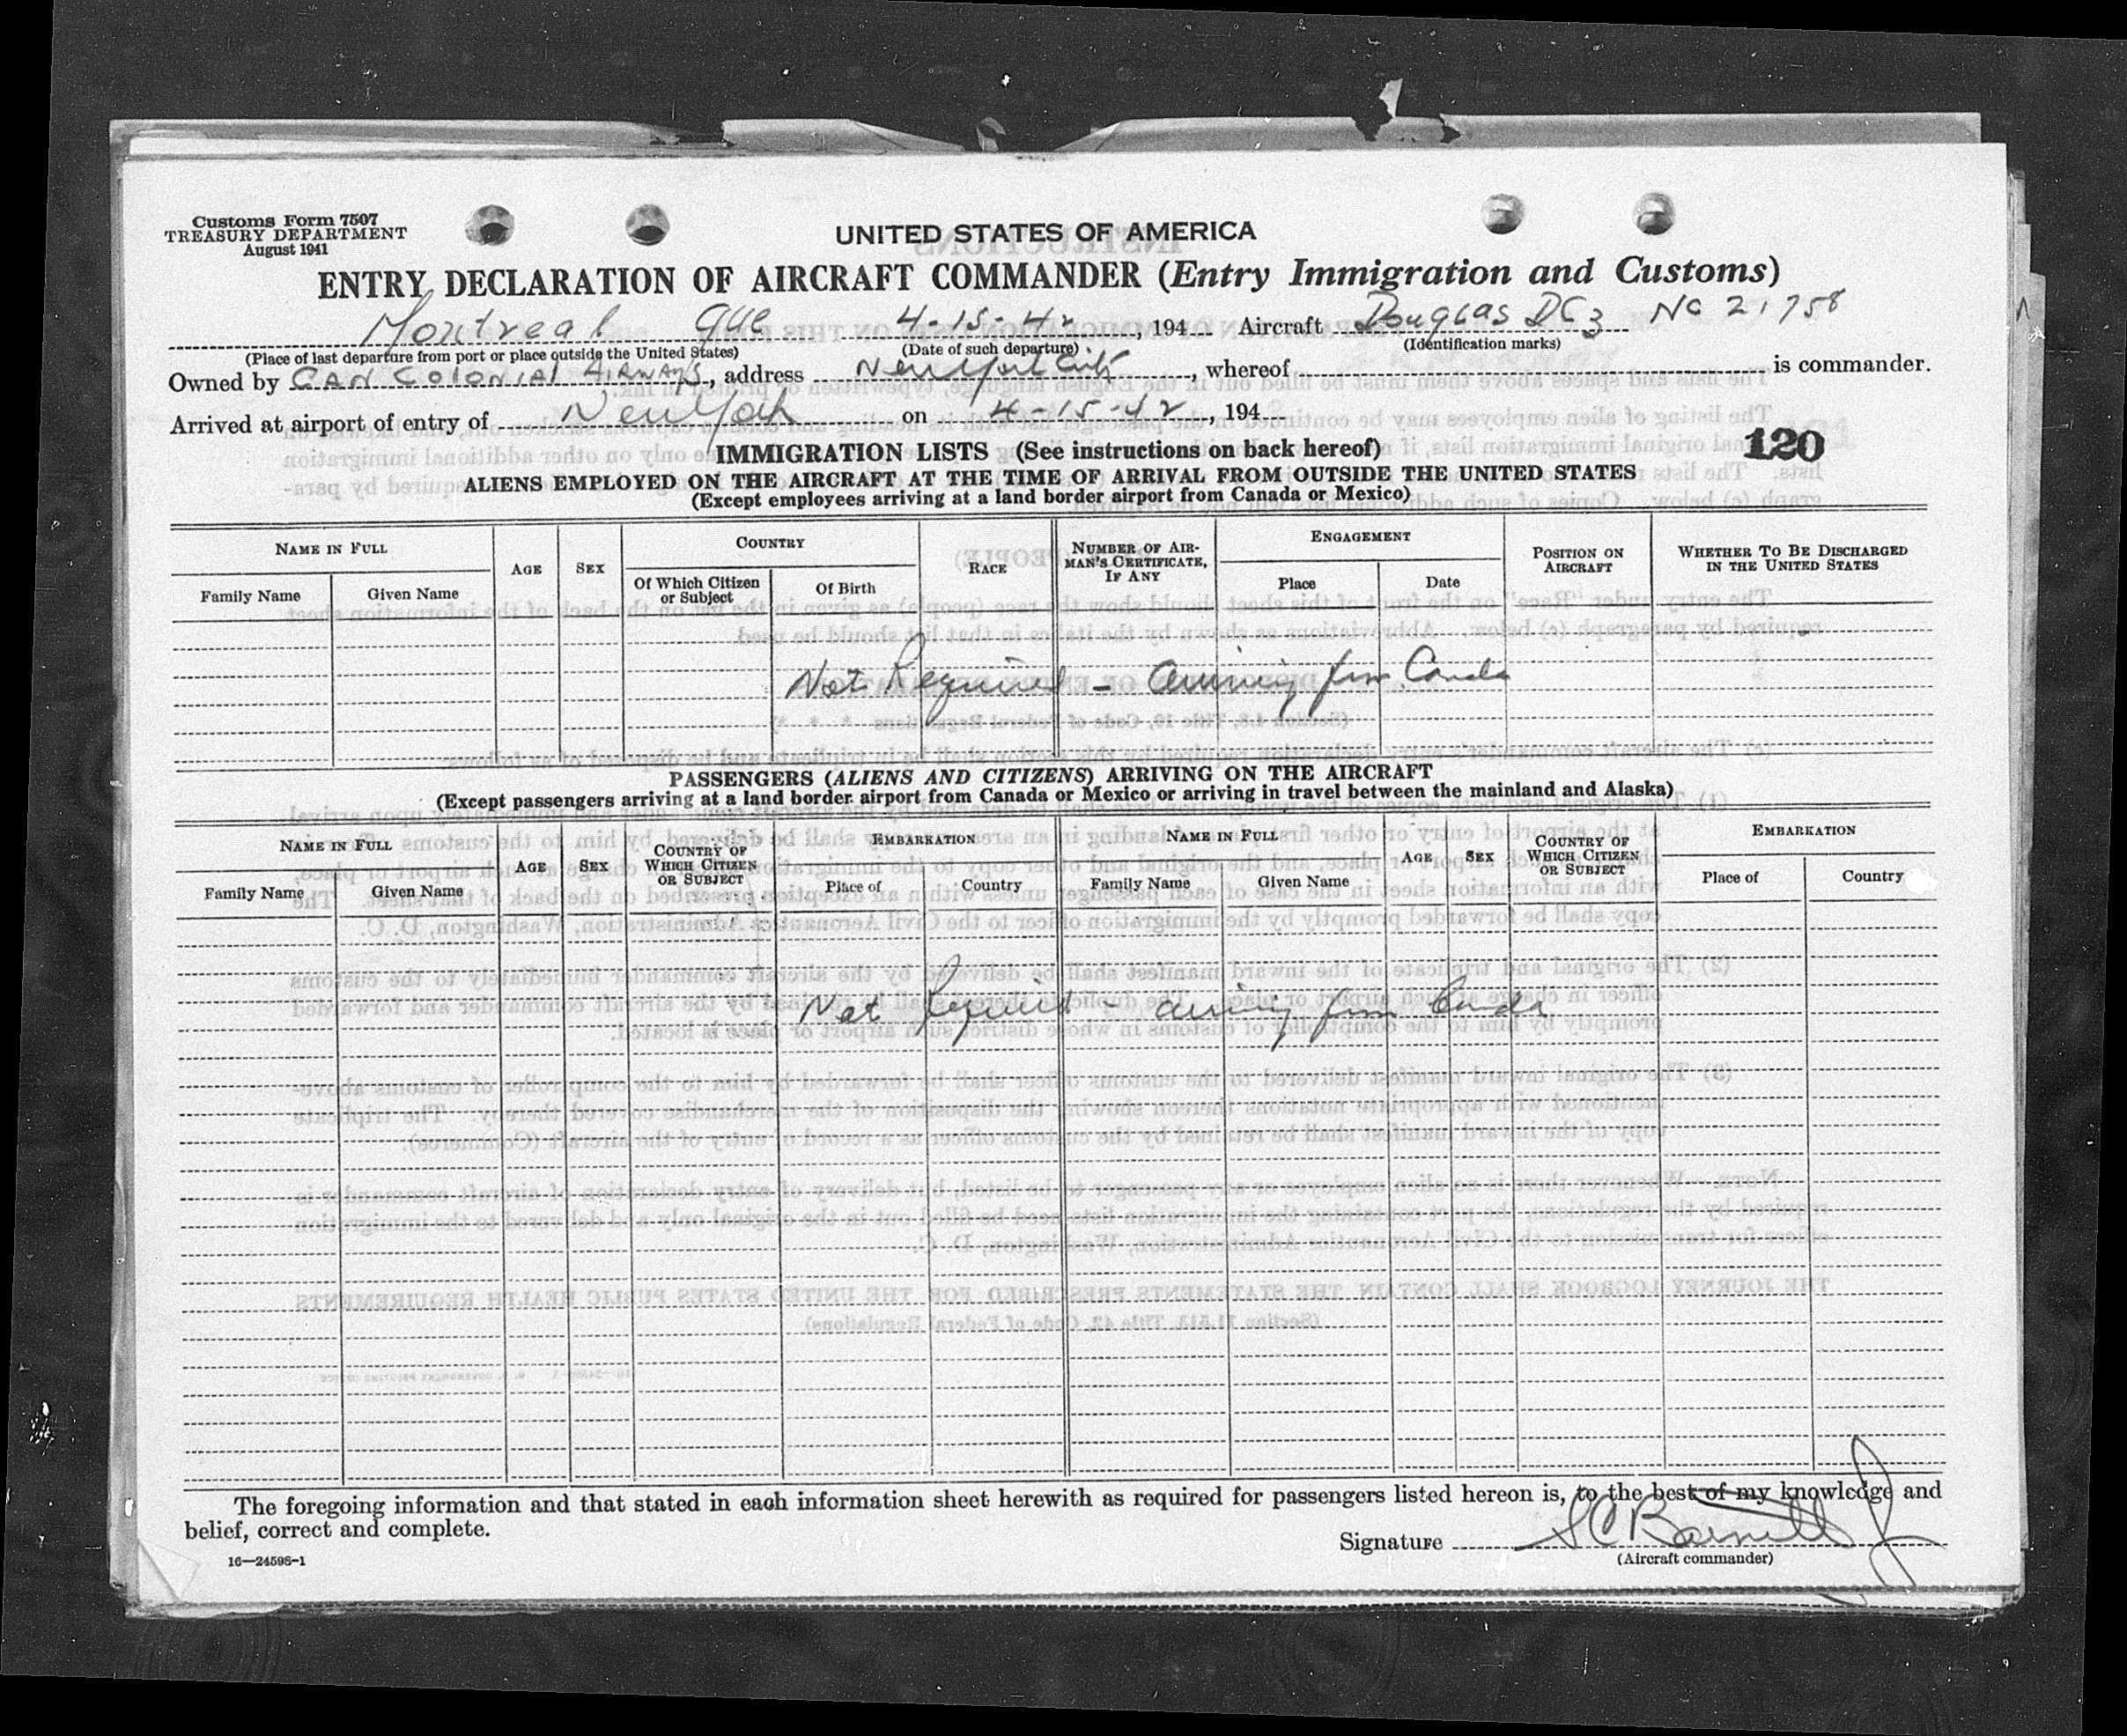 Customs Form 7507
TREASURY DEPARTMENT
August 1941
UNITED STATES OF AMERICA
ENTRY DECLARATION OF AIRCRAFT COMMANDER (Entry Immigration and Customs)
Montreal Que 4-15-42, 194 Aircraft Douglas DC3 NC 21758
(Place of last departure from port or place outside the United States) (Date of such departure) (Identification marks)
Owned by CAN COLONIAL AIRWAYS, address New York City, whereof is commander.
Arrived at airport of entry of New York on 4-15-42, 194
120
IMMIGRATION LISTS (See instructions on back hereof)
ALIENS EMPLOYED ON THE AIRCRAFT AT THE TIME OF ARRIVAL FROM OUTSIDE THE UNITED STATES
(Except employees arriving at a land border airport from Canada or Mexico)
NAME IN FULL AGE SEX COUNTRY RACE NUMBER OF AIRMAN'S CERTIFICATE, IF ANY ENGAGEMENT POSITION ON AIRCRAFT WHETHER TO BE DISCHARGED IN THE UNITED STATES
Family Name Given Name Of Which Citizen or Subject Of Birth Place Date
Not Required - Arriving from Canada
PASSENGERS (ALIENS AND CITIZENS) ARRIVING ON THE AIRCRAFT
(Except passengers arriving at a land border airport from Canada or Mexico or arriving in travel between the mainland and Alaska)
NAME IN FULL AGE SEX COUNTRY OF WHICH CITIZEN OR SUBJECT EMBARKATION NAME IN FULL AGE SEX COUNTRY OF WHICH CITIZEN OR SUBJECT EMBARKATION
Family Name Given Name Place of Country Family Name Given Name Place of Country
Not Required arriving from Canada
The foregoing information and that stated in each information sheet herewith as required for passengers listed hereon is, to the best of my knowledge and
belief, correct and complete.
Signature S C Barnitt Jr
(Aircraft commander)
16—24598-1